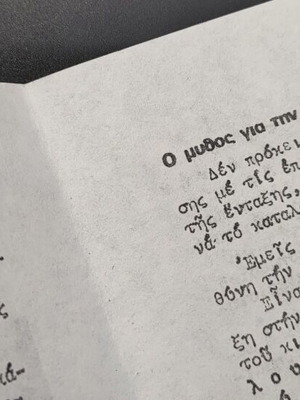 Ο μυθος για την
Δέν πρόκει
σης μέ τίς ἐπ
τῆς ἔνταξης,
νά τό καταλ
Ἐμεῖς
θύνη τήν
Εἶνα
ξη στήν
τοῦ κι
λ ο υ
ς
κά-
ς